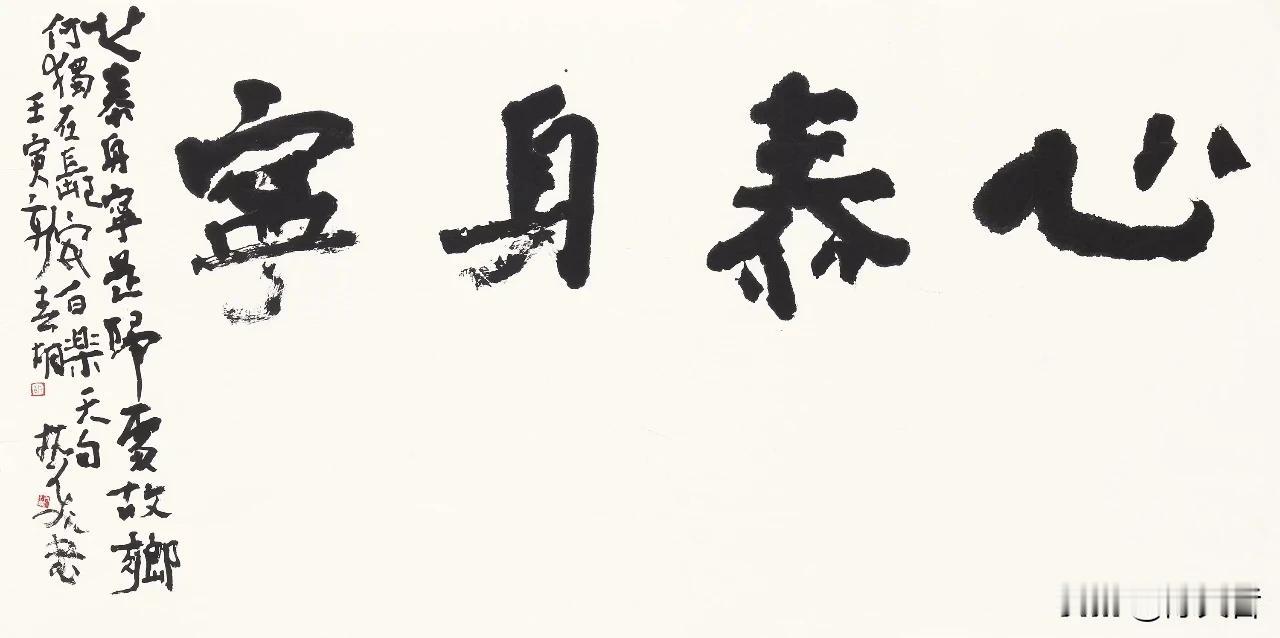 心泰身寧
心泰身寧是歸處故鄉
何獨在長安白楽天句
壬寅新春胡抗美書